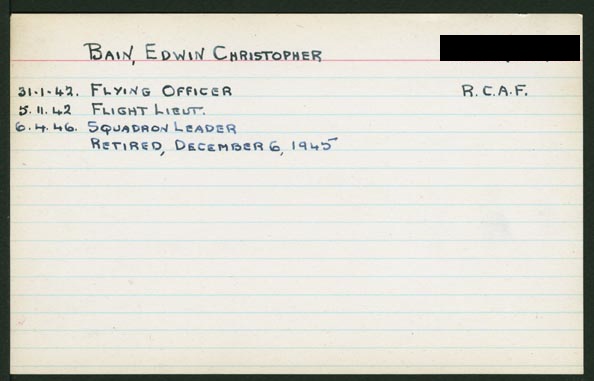 BAIN, EDWIN CHRISTOPHER
31.1.42. FLYING OFFICER R.C.A.F.
5.11.42 FLIGHT LIEUT.
6.4.46. SQUADRON LEADER
RETIRED, DECEMBER 6, 1945